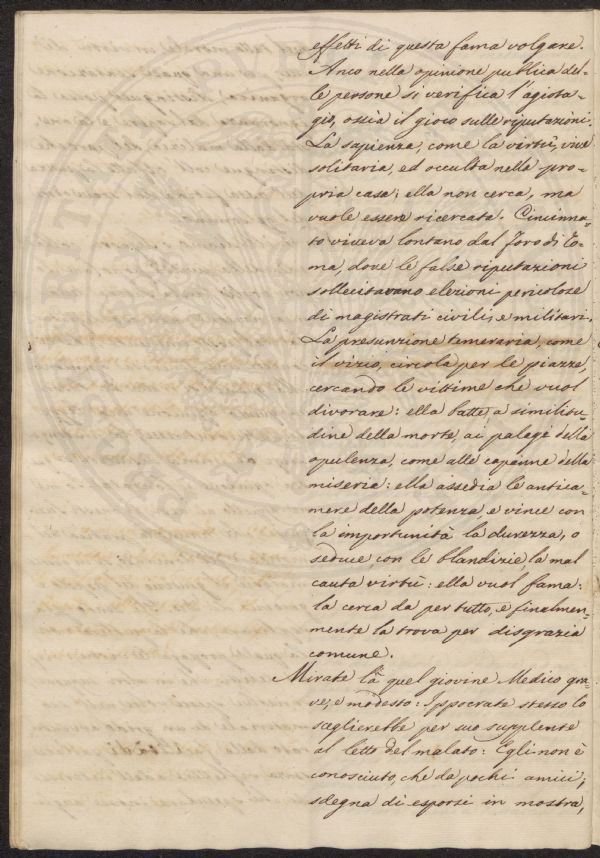 effetti di questa fama volgare.
Anco nella opinione publica del=
le persone si verifica l'agiota=
gio, ossia il gioco sulle riputazioni.
La sapienza, come la virtù, vive
solitaria, ed occulta nella pro=
pria casa; ella non cerca, ma
vuole essere ricercata. Cincinna=
to viveva lontano dal Foro di Ro=
ma, dove le false riputazioni
sollecitavano elezioni pericolose
di magistrati civili, e militari.
La presunzione temeraria, come
il vizio, circola per le piazze,
cercando le vittime che vuol
divorare: ella batte, a similitu=
dine della morte, ai palagi della
opulenza, come alle capanne della
miseria: ella assedia le antica=
mere della potenza e vince con
la importunità la durezza, o
seduce con le blandizie, la mal
cauta virtù: ella vuol fama:
la cerca da per tutto, e finalmen=
mente la trova per disgrazia
comune.
Mirate là quel giovine Medico gra=
ve, e modesto: Ippocrate stesso lo
sceglierebbe per suo supplente
al letto del malato: Egli non è
conosciuto, che da pochi amici;
sdegna di esporsi in mostra,